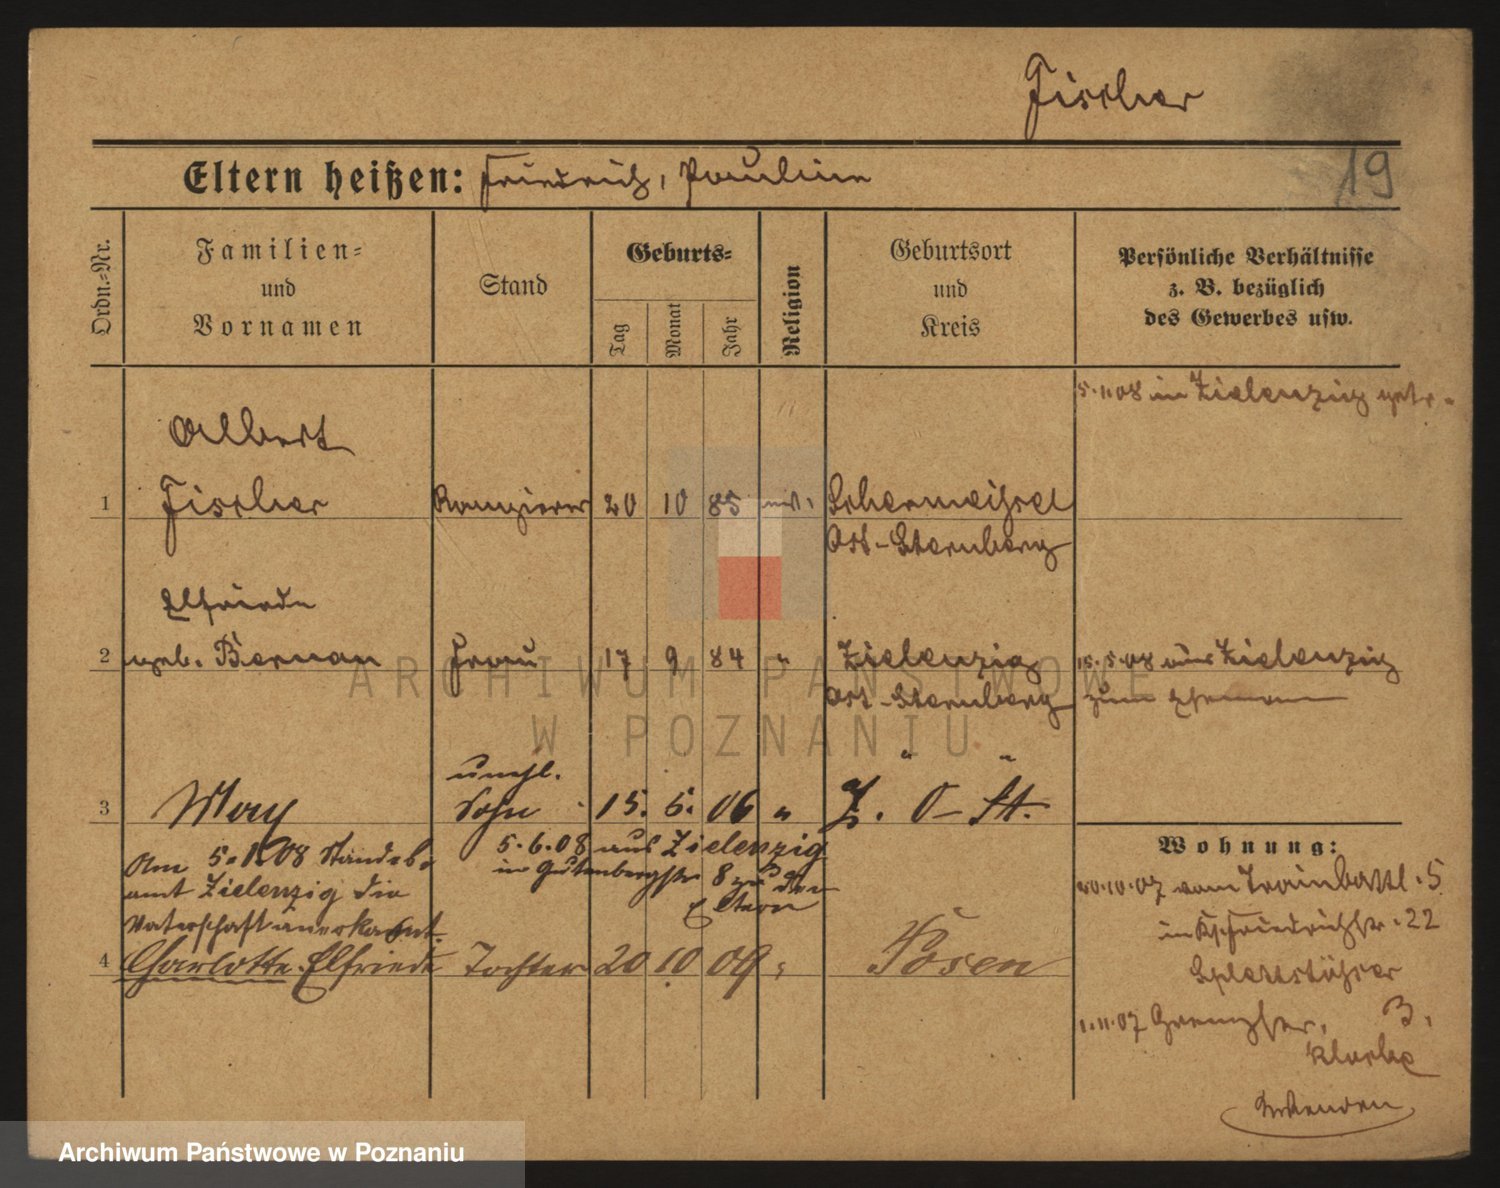 Fischer
Eltern heißen: Friedrich, Pauline
19
Ordn.-Nr.
Familien-
und
Vornamen
Stand
Geburts-
Tag
Monat
Jahr
Religion
Geburtsort
und
Kreis
Persönliche Verhältnisse
z. B. bezüglich
des Gewerbes usw.
5.11.08 in Zielenzig getr.
Albert
1 Fischer Rangierer 20 10 85 ev. Schermeissel
Ost-Sternberg
Elfriede
2 geb. Bernau Frau 17 9 84 " Zielenzig 15.5.08 aus Zielenzig
Ost-Sternberg zum Ehemann
unehl. " "
3 Max Sohn 15. 6. 06 " Z. O-St.
Am 5.11.08 Standes-
amt Zielenzig die
Vaterschaft anerkannt.
5.6.08 aus Zielenzig
in Gutenbergstr 8 zu den
Eltern
4 Charlotte Elfriede Tochter 20 10 09 " Posen
Wohnung:
20.10.07 vom Trainbattl. 5
in Kais. Friedrichstr. 22
1.11.07 Grenzstr. 3,
Wenden
ARCHIWUM PAŃSTWOWE
W POZNANIU
Archiwum Państwowe w Poznaniu